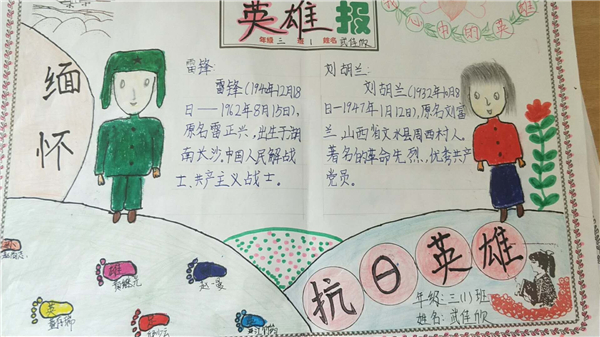 英雄报
年级 三 班 1 姓名 武佳欣
我心中的英雄
缅怀
雷锋:
雷锋(1940年12月18
日——1962年8月15日),
原名雷正兴,出生于湖
南长沙,中国人民解放战
士、共产主义战士。
刘胡兰:
刘胡兰(1932年10月8
日-1947年1月12日),原名刘富
兰,山西省文水县周西村人,
著名的革命先烈、优秀共产
党员。
抗日英雄
年级:三(1)班
姓名:武佳欣
雄
赵一曼
英